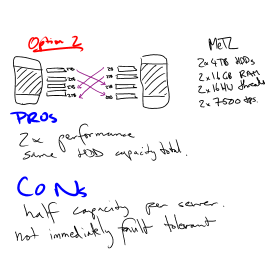 Option 2
MetZ
2x 4TB HDDs
2x 16GB RAM
2x 16HV threads
2x 7500 ops.
2TB 2TB
2TB 2TB
2TB 2TB
2TB 2TB
PROS
2x performance
same HDD capacity total.
CONS
half capacity per server.
not immediately fault tolerant